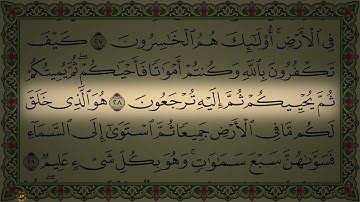 فِى ٱلْأَرْضِ ۚ أُو۟لَـٰٓئِكَ هُمُ ٱلْخَـٰسِرُونَ ٢٧ كَيْفَ
تَكْفُرُونَ بِٱللَّهِ وَكُنتُمْ أَمْوَٰتًا فَأَحْيَـٰكُمْ ۖ ثُمَّ يُمِيتُكُمْ
ثُمَّ يُحْيِيكُمْ ثُمَّ إِلَيْهِ تُرْجَعُونَ ٢٨ هُوَ ٱلَّذِى خَلَقَ
لَكُم مَّا فِى ٱلْأَرْضِ جَمِيعًا ثُمَّ ٱسْتَوَىٰٓ إِلَى ٱلسَّمَآءِ
فَسَوَّىٰهُنَّ سَبْعَ سَمَـٰوَٰتٍ ۚ وَهُوَ بِكُلِّ شَىْءٍ عَلِيمٌ ٢٩